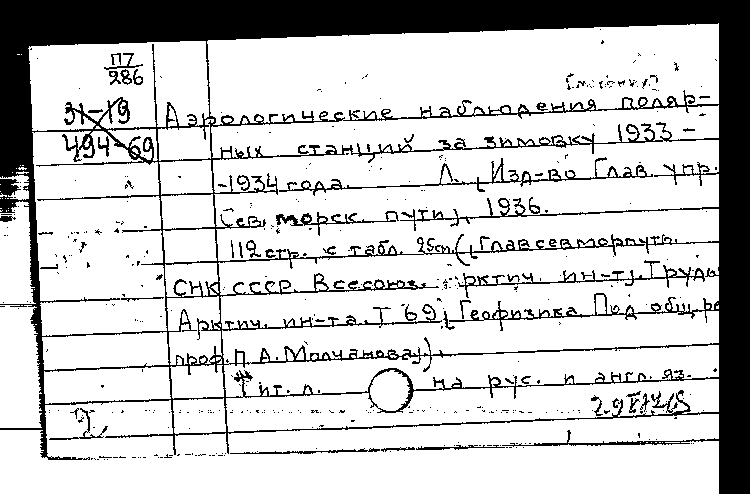 П7
286
31-19
494-69
Аэрологические наблюдения поляр-
ных станций за зимовку 1933 -
-1934 года. Л. [Изд-во Глав. упр.
Сев. морск. пути], 1936.
112 стр. с табл. 25см. ([Главсевморпуть.
СНК СССР. Всесоюз. арктич. ин-т]. Труды
Арктич. ин-та. Т 69[Геофизика. Под общ. ре
проф. П. А. Молчанова]).
Тит. л. на рус. и англ. яз.
2